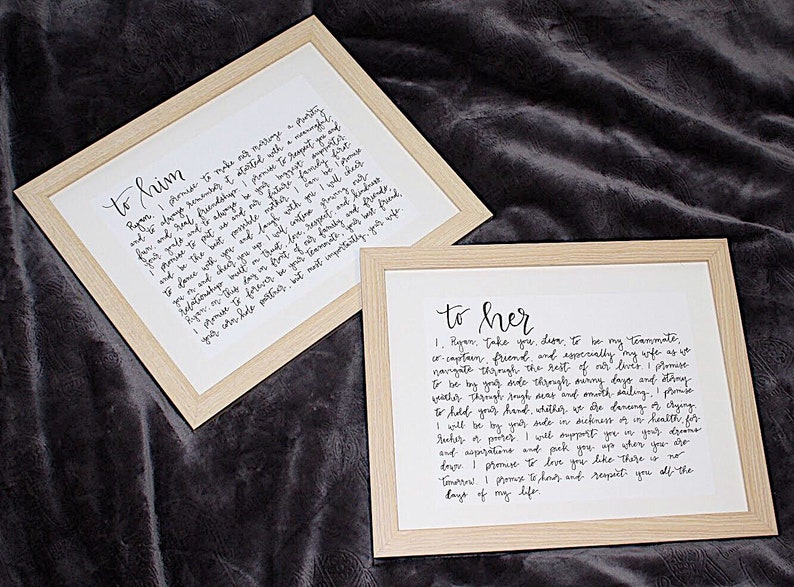 to him
Ryan, I promise to make our marriage a priority
and to always remember it started with a meaningful,
fun, and real friendship. I promise to respect you and
your goals and to always be your biggest supporter.
I promise to put us and our future family first
and be the best possible mother I can be. I promise
to dance with you and laugh with you. I will cheer
you on and cheer you up. I will continue growing our
relationship built on trust, love, respect, and kindness.
Ryan, on this day in front of our family and friends, I
promise to forever be our teammate, your best friend,
your corn hole partner, but most importantly, your wife.
to her
I, Ryan, take you, Lisa, to be my teammate,
co-captain, friend, and especially my wife as we
navigate through the rest of our lives. I promise
to be by your side through sunny days and stormy
weather, through rough seas and smooth sailing. I promise
to hold your hand, whether we are dancing or crying.
I will be by your side in sickness or in health, for
richer or poorer. I will support you in your dreams
and aspirations and pick you up when you are
down. I promise to love you like there is no
tomorrow. I promise to honor and respect you all the
days of my life.